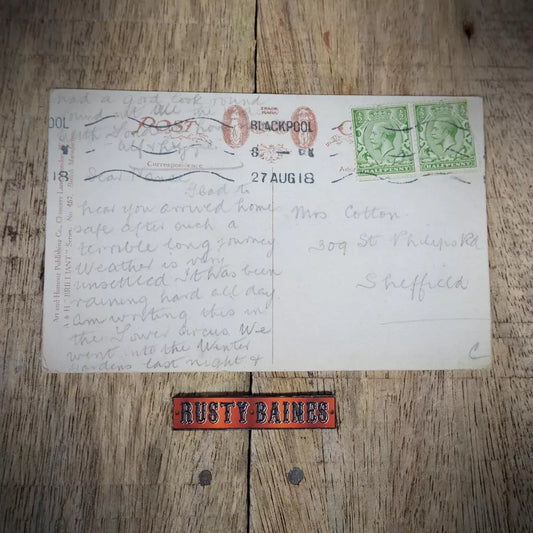 had a good look round
POST
TRADE MARK
Correspondence
OOL
18
BLACKPOOL
27 AUG 18
HALFPENNY
HALFPENNY
Glad to
hear you arrived home
safe after such a
terrible long journey
Weather is very
unsettled It has been
raining hard all day
am writing this in
the Tower Circus. We
went into the Winter
Gardens last night &
Mrs Cotton
309 St Philips Rd
Sheffield
C
Art and Humour Publishing Co., Chancery Lane, London
A & H "BRILLIANT" Series No. 467
RUSTY·BAINES